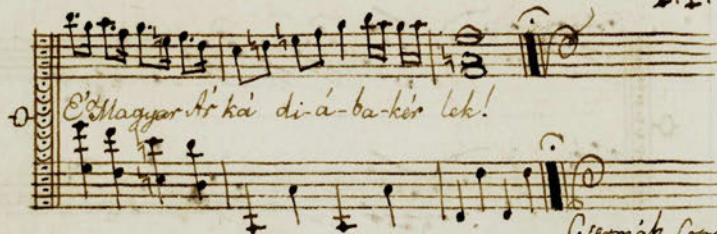 E' Magyar Árká di-á-ba kér lek!
Csermák